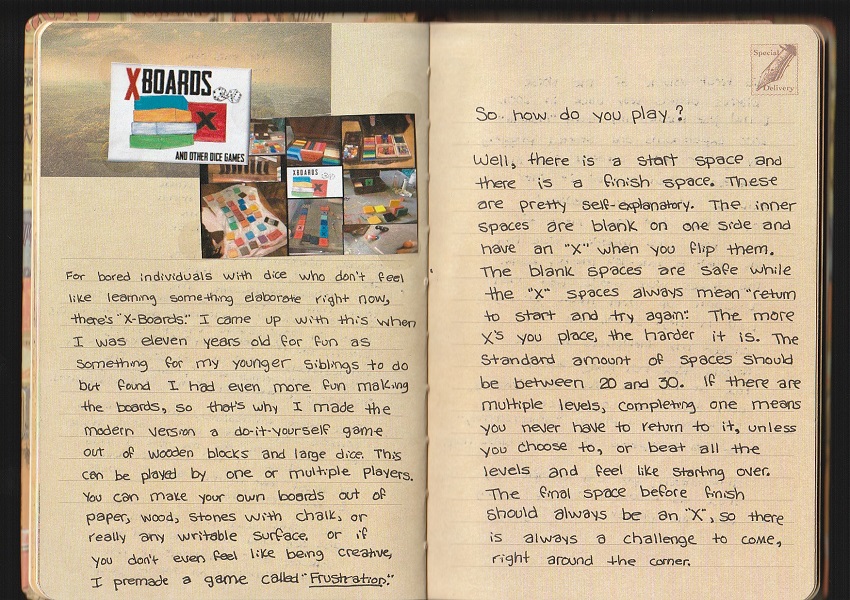 XBOARDS
X
AND OTHER DICE GAMES
XBOARDS
For bored individuals with dice who don't feel
like learning something elaborate right now,
there's "X-Boards." I came up with this when
I was eleven years old for fun as
something for my younger siblings to do
but found I had even more fun making
the boards, so that's why I made the
modern version a do-it-yourself game
out of wooden blocks and large dice. This
can be played by one or multiple players.
You can make your own boards out of
paper, wood, stones with chalk, or
really any writable surface. or if
you don't even feel like being creative,
I premade a game called "Frustration."
Special
Delivery
So how do you play?
Well, there is a start space and
there is a finish space. These
are pretty self-explanatory. The inner
spaces are blank on one side and
have an "X" when you flip them.
The blank spaces are safe while
the "X" spaces always mean "return
to start and try again." The more
X's you place, the harder it is. The
standard amount of spaces should
be between 20 and 30. If there are
multiple levels, completing one means
you never have to return to it, unless
you choose to, or beat all the
levels and feel like starting over.
The final space before finish
should always be an "X", so there
is always a challenge to come,
right around the corner.